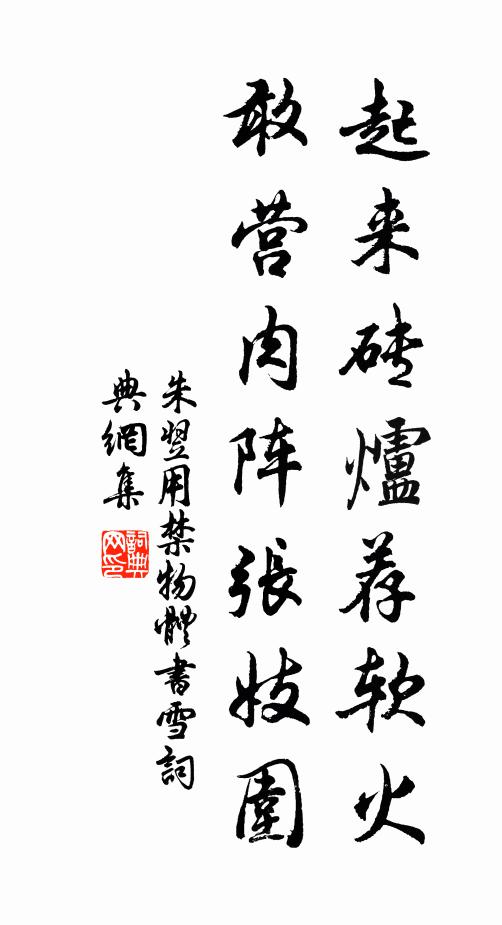 起来砖爐荐软火
敢营肉阵張妓圍
朱翌用禁物體書雪詞
典網集
詞典
网印